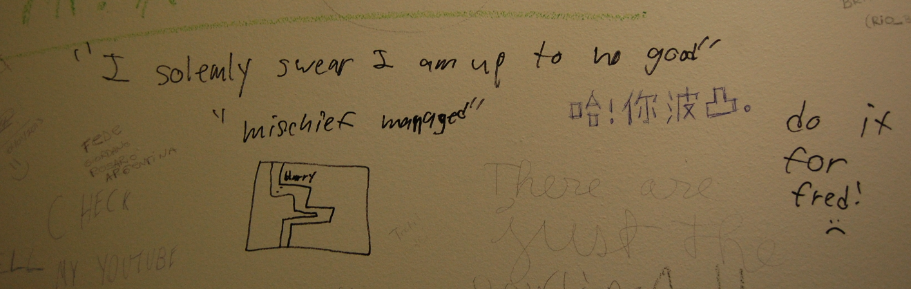 "I solemnly swear I am up to no good"
"mischief managed"
哈!你波凸。
do it
for
fred!
Harry
There are
just the
CHECK
MY YOUTUBE